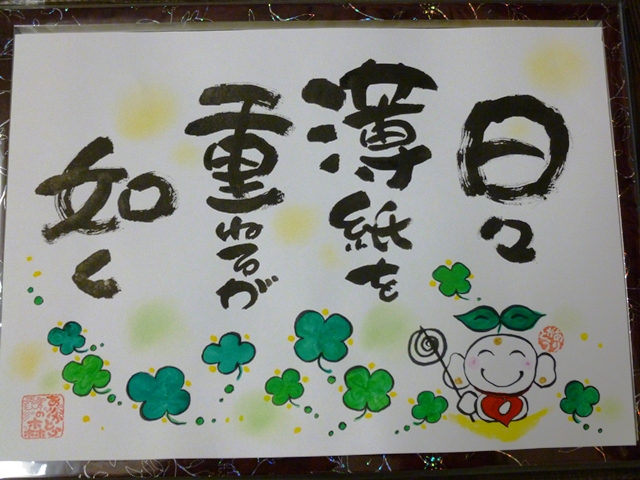 日々
薄紙を
重ねるが
如く